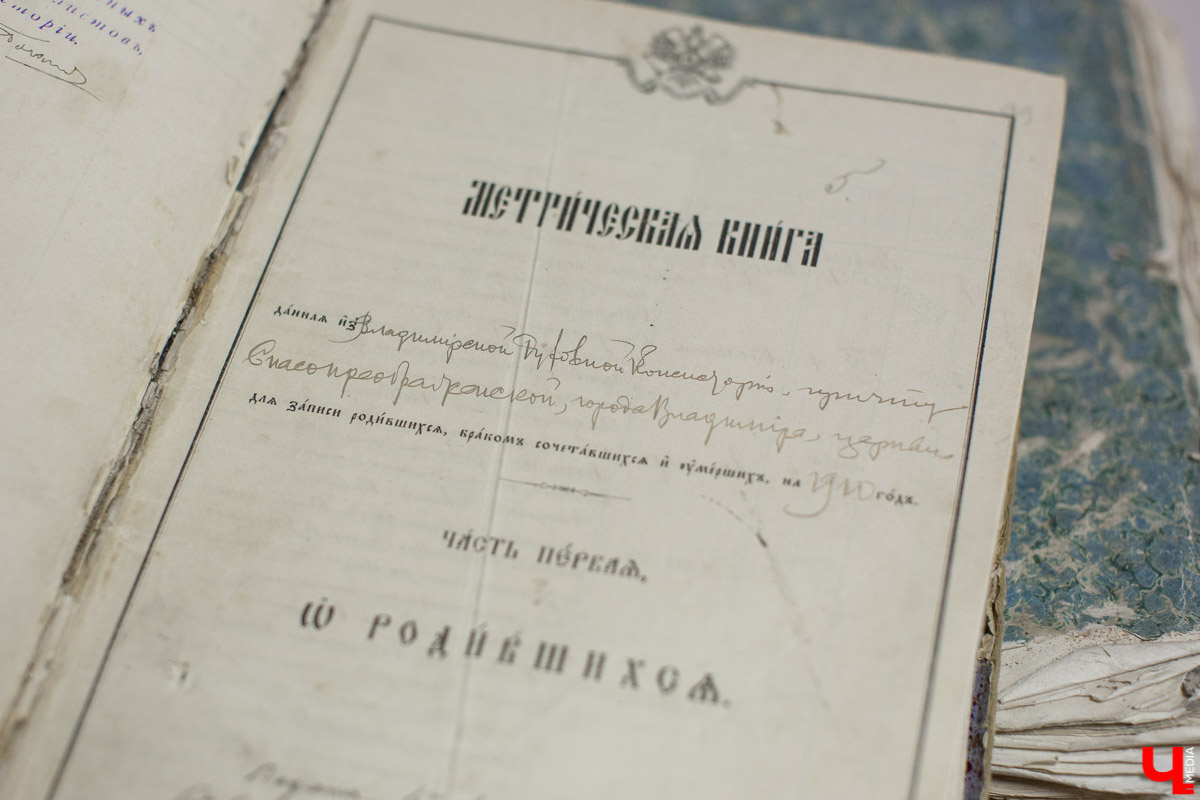 ныхъ
листовъ,
сторіи.
5
МЕТРИ́ЧЕСКАѦ КНИ́ГА
да́ннаѧ и҆з̾ Владимірской Духовной Консисторіи, причту
Спасопреображенской, города Владиміра, церкви
для за́писи роди́вшихсѧ, бра́комъ сочета́вшихсѧ и҆ ᲂу҆ме́ршихъ, на 1910 го́дъ.
ЧА́СТЬ ПЕ́РВАѦ,
Ѡ҆ РОДИ́ВШИХСѦ.
Ч
MEDIA